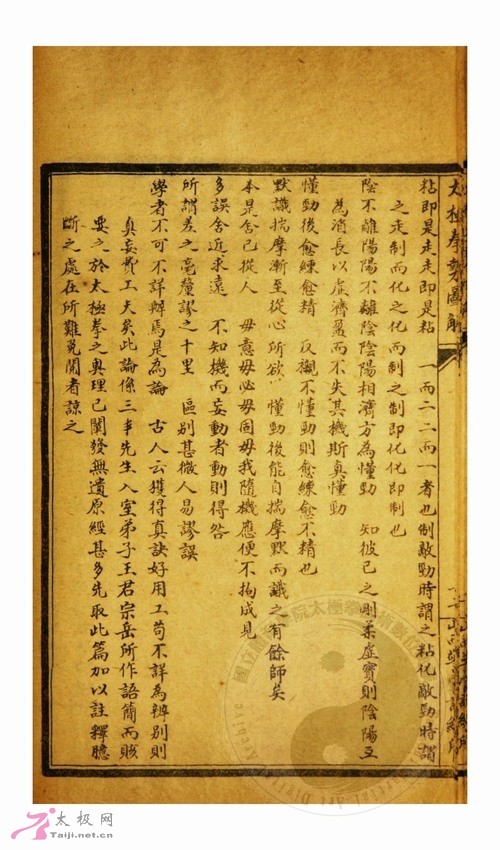 太極拳勢圖解
粘即是走走即是粘　一而二二而一者也制敵勁時謂之粘化敵勁時謂
之走制而化之化而制之制即化化即制也
陰不離陽陽不離陰陰陽相濟方為懂勁　知彼己之剛柔虛實則陰陽互
為消長以虛濟盈而不失其機斯真懂勁
懂勁後愈練愈精　反襯不懂勁則愈練愈不精也
默識揣摩漸至從心所欲　懂勁後能自揣摩默而識之有餘師矣
本是舍己從人　毋意毋必毋固毋我隨機應便不拘成見
多誤舍近求遠　不知機而妄動者動則得咎
所謂差之毫釐謬之千里　區別甚微人易謬誤
學者不可不詳辨焉是為論　古人云獲得真訣好用工苟不詳為辨別則
真妄費工夫矣此論係三丰先生入室弟子王君宗岳所作語簡而賅
要之於太極拳之奧理已闡發無遺原經甚多先取此篇加以註釋臆
斷之處在所難免閱者諒之
太极网
Taiji.net.cn